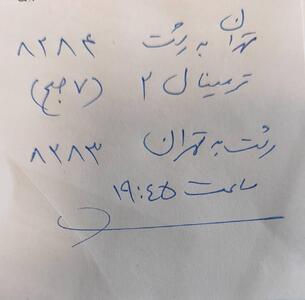 تهران به رشت ۸۲۸۴
ترمینال ۲ (۷ صبح)
رشت به تهران ۸۲۸۳
ساعت ۱۹:۴۵